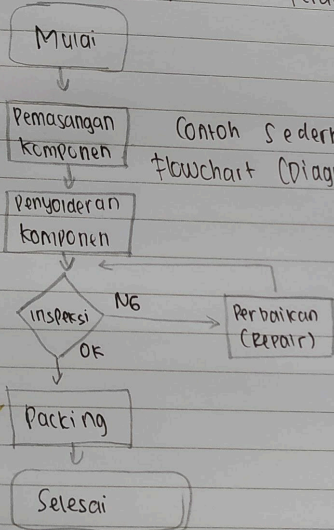 Mulai
Pemasangan
Komponen
Contoh Seder
Flowchart (Diag
Penyolderan
Komponen
Inspeksi
NG
Perbaikan
(Repair)
OK
Packing
Selesai